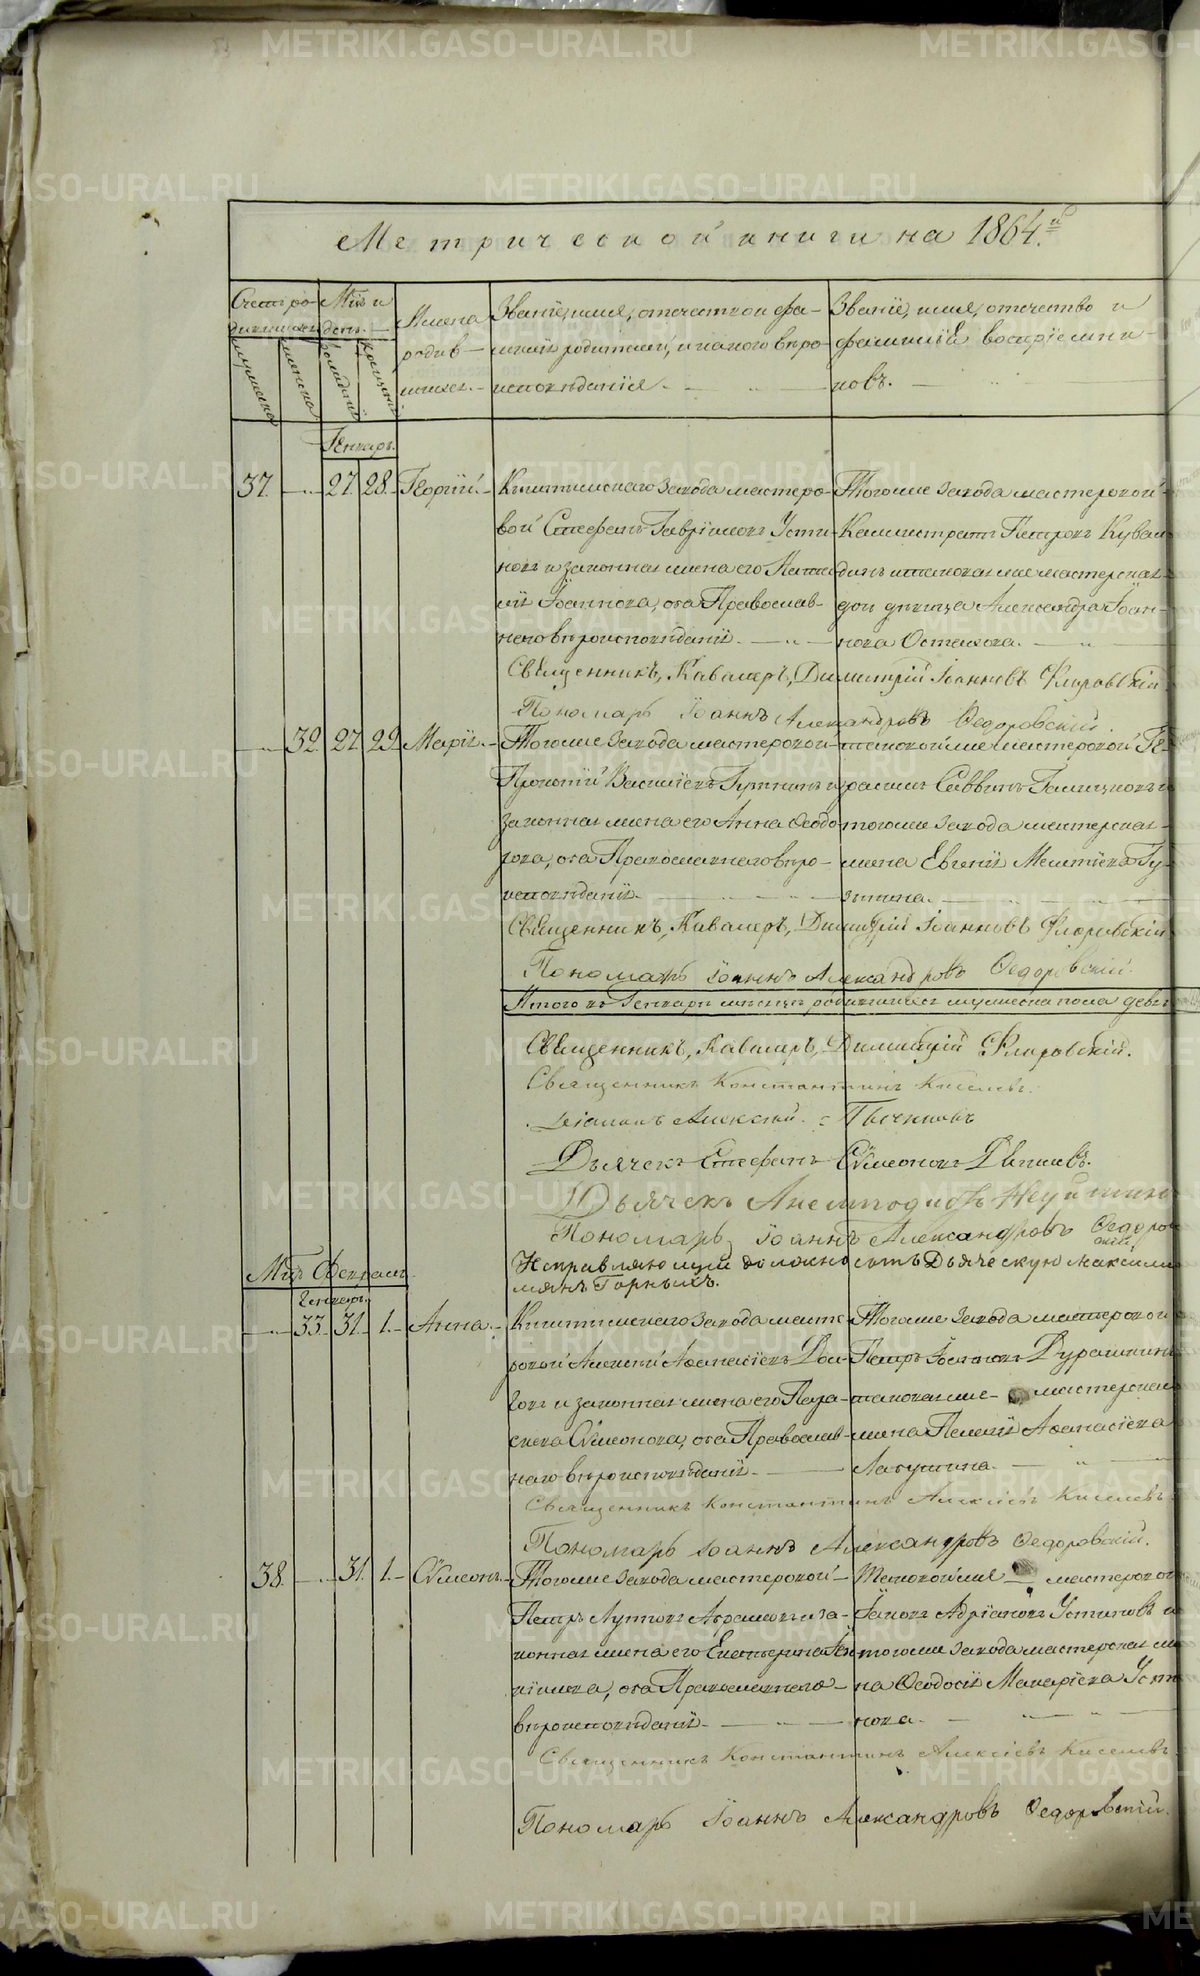 Метрической книги на 1864й
Счетъ ро-
дившихся
мужеска
женска
Мцъ и
день.
рожденія
крещенія
Имена
родив-
шихся.
Званіе, имя, отчество и фа-
милія родителей, и какого вѣро-
исповѣданія.
Званіе, имя, отчество и
фамилія воспріемни-
ковъ.
Генварь.
37. 27. 28. Георгій.
Кыштымскаго завода мастеро-
вой Стефанъ Гавріиловъ Усти-
новъ и законная жена его Ната-
лія Іоаннова, оба Православ-
наго вѣроисповѣданія.
Тогоже завода мастеровой
Каллистратъ Петровъ
и таковая же мастерская
дочь дѣвица Александра Іоан-
нова
Священникъ, Кавалеръ, Димитрій Іоанновъ Флоровскій
Пономарь Іоаннъ Александровъ Ѳедоровскій.
32. 27. 29. Марія.
Тогоже завода мастеровой
Прокопій Василіевъ и
законная жена его Анна Ѳеодо-
рова, оба Православнаго вѣро-
исповѣданія.
таковой же мастеровой Ге-
расимъ Саввинъ Галицковъ и
тогоже завода мастерская
жена Евгенія
Священникъ, Кавалеръ, Димитрій Іоанновъ Флоровскій
Пономарь Іоаннъ Александровъ Ѳедоровскій.
Итого въ Генварѣ мѣсяцѣ родившихся мужеска пола
Священникъ, Кавалеръ, Димитрій Флоровскій.
Священникъ Константинъ Киселевъ.
Діаконъ Алексій
Дьячекъ Стефанъ Сѵмеоновъ
Дьячекъ Анемподистъ
Пономарь Іоаннъ Александровъ Ѳедоров
скій
Исправляющій должность Дьяческую Максими
ліянъ Горныхъ.
Мцъ Февраль.
Генварь.
33. 31. 1. Анна.
Кыштымскаго завода масте-
ровой Алексій Аѳанасіевъ
и законная жена его Пара-
скева Сѵмеонова, оба Православ-
наго вѣроисповѣданія.
Тогоже завода мастеровой
Петръ Іоанновъ Дурашкинъ
таковая же мастерская
жена Пелагія Аѳанасіева
Латушина.
Священникъ Константинъ Алексіевъ Киселевъ
Пономарь Іоаннъ Александровъ Ѳедоровскій.
38. 31. 1. Сѵмеонъ.
Тогоже завода мастеровой
Петръ Лупповъ Аврамовъ и за-
конная жена его Екатерина
оба Православнаго
вѣроисповѣданія.
Таковой же мастеровой
Іаковъ Адріановъ Устиновъ и
тогоже завода мастерская же
на Ѳеодосія Макаріева Усти
нова.
Священникъ Константинъ Алексіевъ Киселевъ
Пономарь Іоаннъ Александровъ Ѳедоровскій.
METRIKI.GASO-URAL.RU